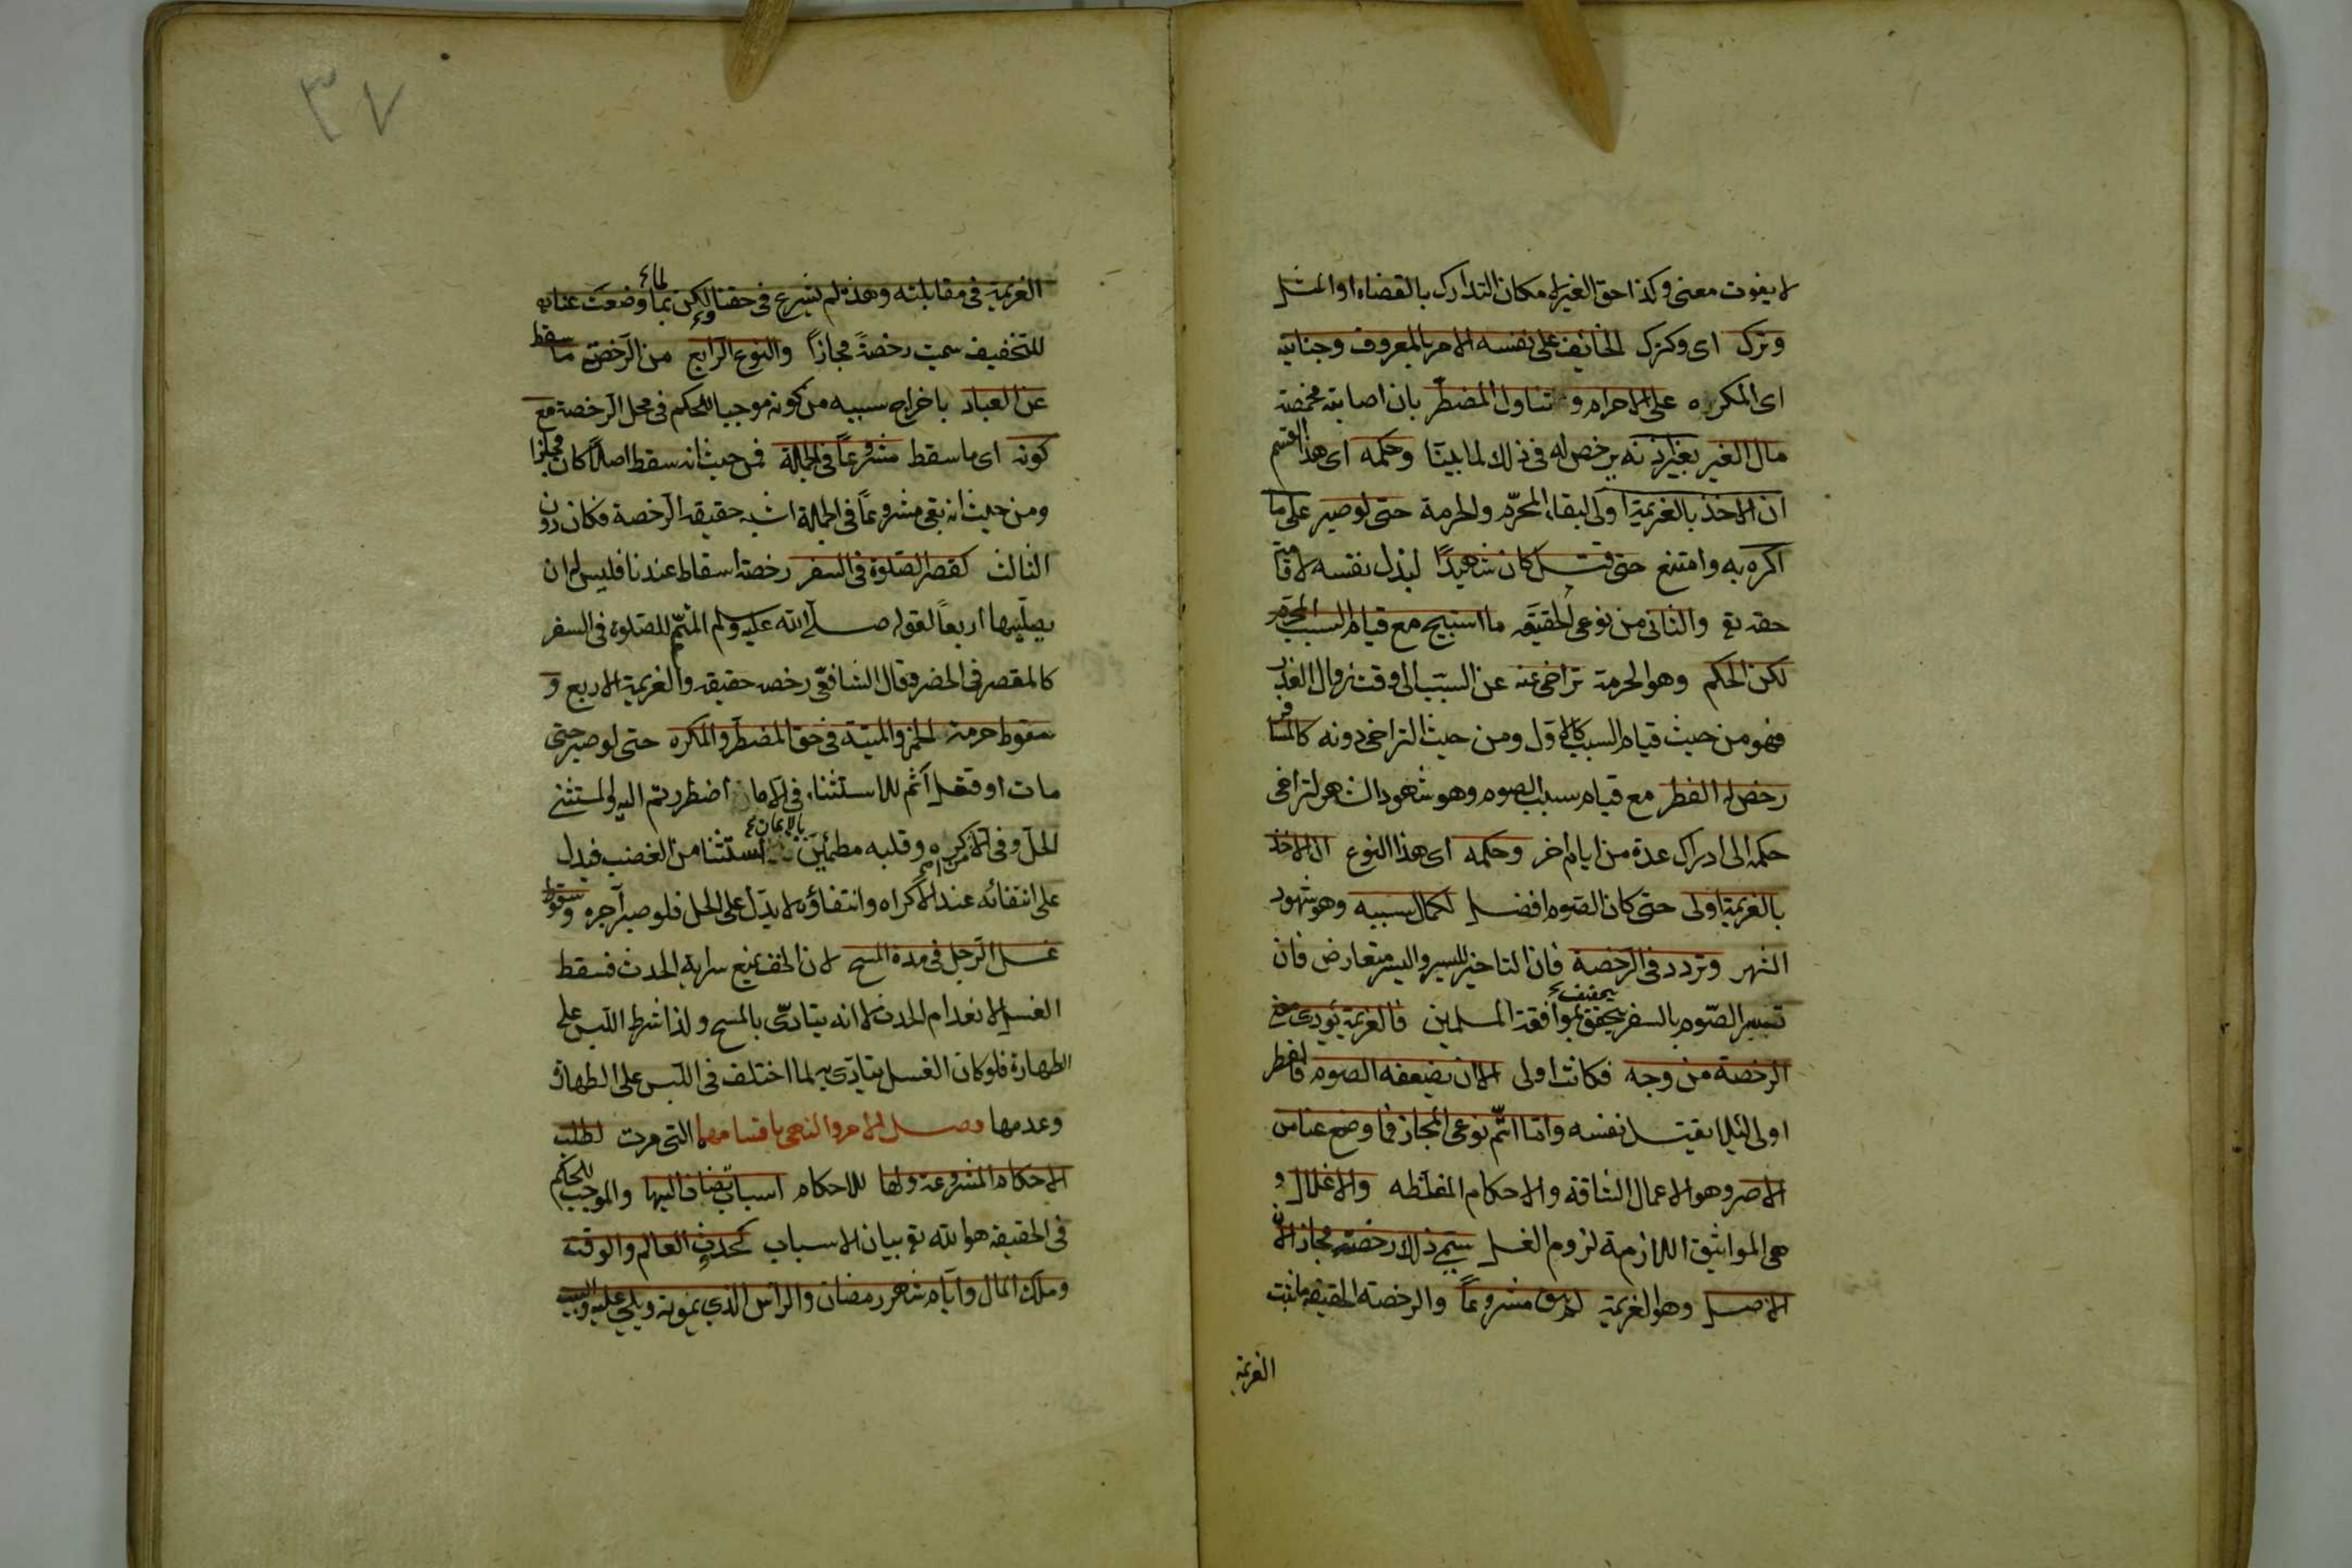 لا يفوت معنى وكذا حق الغير لامكان التدارك بالقضاء او المثل
وترك اى وكترك الخائف على نفسه الامر بالمعروف وجنايته
اى المكره على الاحرام و تناول المضطر بان اصابته مخمصة
مال الغير بغير اذنه يرخص له فى ذلك لما بينا وحكمه اى هذا القسم
ان الاخذ بالعزيمة اولى لبقاء المحرّم والحرمة حتى لو صبر على ما
اكره به وامتنع حتى قتل كان شهيدًا لبذل نفسه لاقامة
حقه تع والثانى من نوعى الحقيقه ما استبيح مع قيام السبب المحرم
لكن الحكم وهو الحرمة تراخى عنه عن السبب الى وقت زوال العذر
فهو من حيث قيام السبب كالاول ومن حيث التراخى دونه كالمسافر
رخص له الفطر مع قيام سبب الصوم وهو شهود الشهر لتراخى
حكمه الى ادراك عدة من ايام اخر وحكمه اى هذا النوع ان الاخذ
بالعزيمة اولى حتى كان الصوم افضل لكمال سببه وهو شهود
الشهر وتردد فى الرخصة فان التاخير لليسر واليسر متعارض فان
يخفيف
تيسير الصّوم بالسفر يتحقق بموافقة المسلمين فالعزيمة يؤدى معنى
الرخصة من وجه فكانت اولى الا ان يضعفه الصوم فالفطر
اولى لئلا يقتل نفسه وامّا اتمّ نوعى المجاز فما وضع عنا من
الاصر وهو الاعمال الشاقة والاحكام المغلظه والاغلال و
هى المواثيق اللازمة لزوم الغل يسمى ذلك رخصة مجازا لان
الاصل وهو العزيمة لم يبق مشروعاً والرخصة الحقيقه ما ثبت
العزيمة
٣٧
العزيمة فى مقابلته وهذه لم يشرع فى حقنا ولكن لما وضعت عنا به
للتخفيف سميت رخصةً مجازاً والنوع الرابع من الرّخصة ما سقط
عن العباد باخراج سببه من كونه موجبا للحكم فى محل الرخصة مع
كونه اى ما سقط مشروعاً فى الجملة فمن حيث انه سقط اصلاً كان مجازا
ومن حيث انه بقى مشروعاً فى الجملة اشبه حقيقة الرخصة فكان دون
الثالث كقصر الصّلوة فى السفر رخصة اسقاط عندنا فليس له ان
يصلّيها اربعاً لقوله صلى الله عليه وسلم المتمّ للصّلوة فى السفر
كالمقصر فى الحضر وقال الشافعى رخصه حقيقه والعزيمة الاربع و
سقوط حرمة الخمر والميتة فى حق المضطر والمكره حتى لو صبر حتى
مات او قتل آثم للاستثناء فى الا ما اضطررتم اليه والمستثنى
بالايمان
الحل وفى الا من اكره وقلبه مطمئن استثنا من الغضب فيدل
على انتفائه عند الاكراه وانتفاؤه لا يدّل على الحل فلو صبر آجره وسقوط
غسل الرّجل فى مدة المسح لان الخف يمنع سراية الحدث فسقط
الغسل لانعدام الحدث لا انه يتادّى بالمسح ولذا شرط اللبس على
الطهارة فلو كان الغسل يتادّى به لما اختلف فى اللبس على الطهارة
وعدمها فصل الامر والنهى باقسامهما التى مرت لطلب
الاحكام المشروعة ولها للاحكام اسباب تضاف اليها والموجب للحكم
فى الحقيقة هو الله تع بيان الاسباب كحدث العالم والوقت
وملك المال وايام شهر رمضان والراس الذى يمونه ويلى عليه والبيت